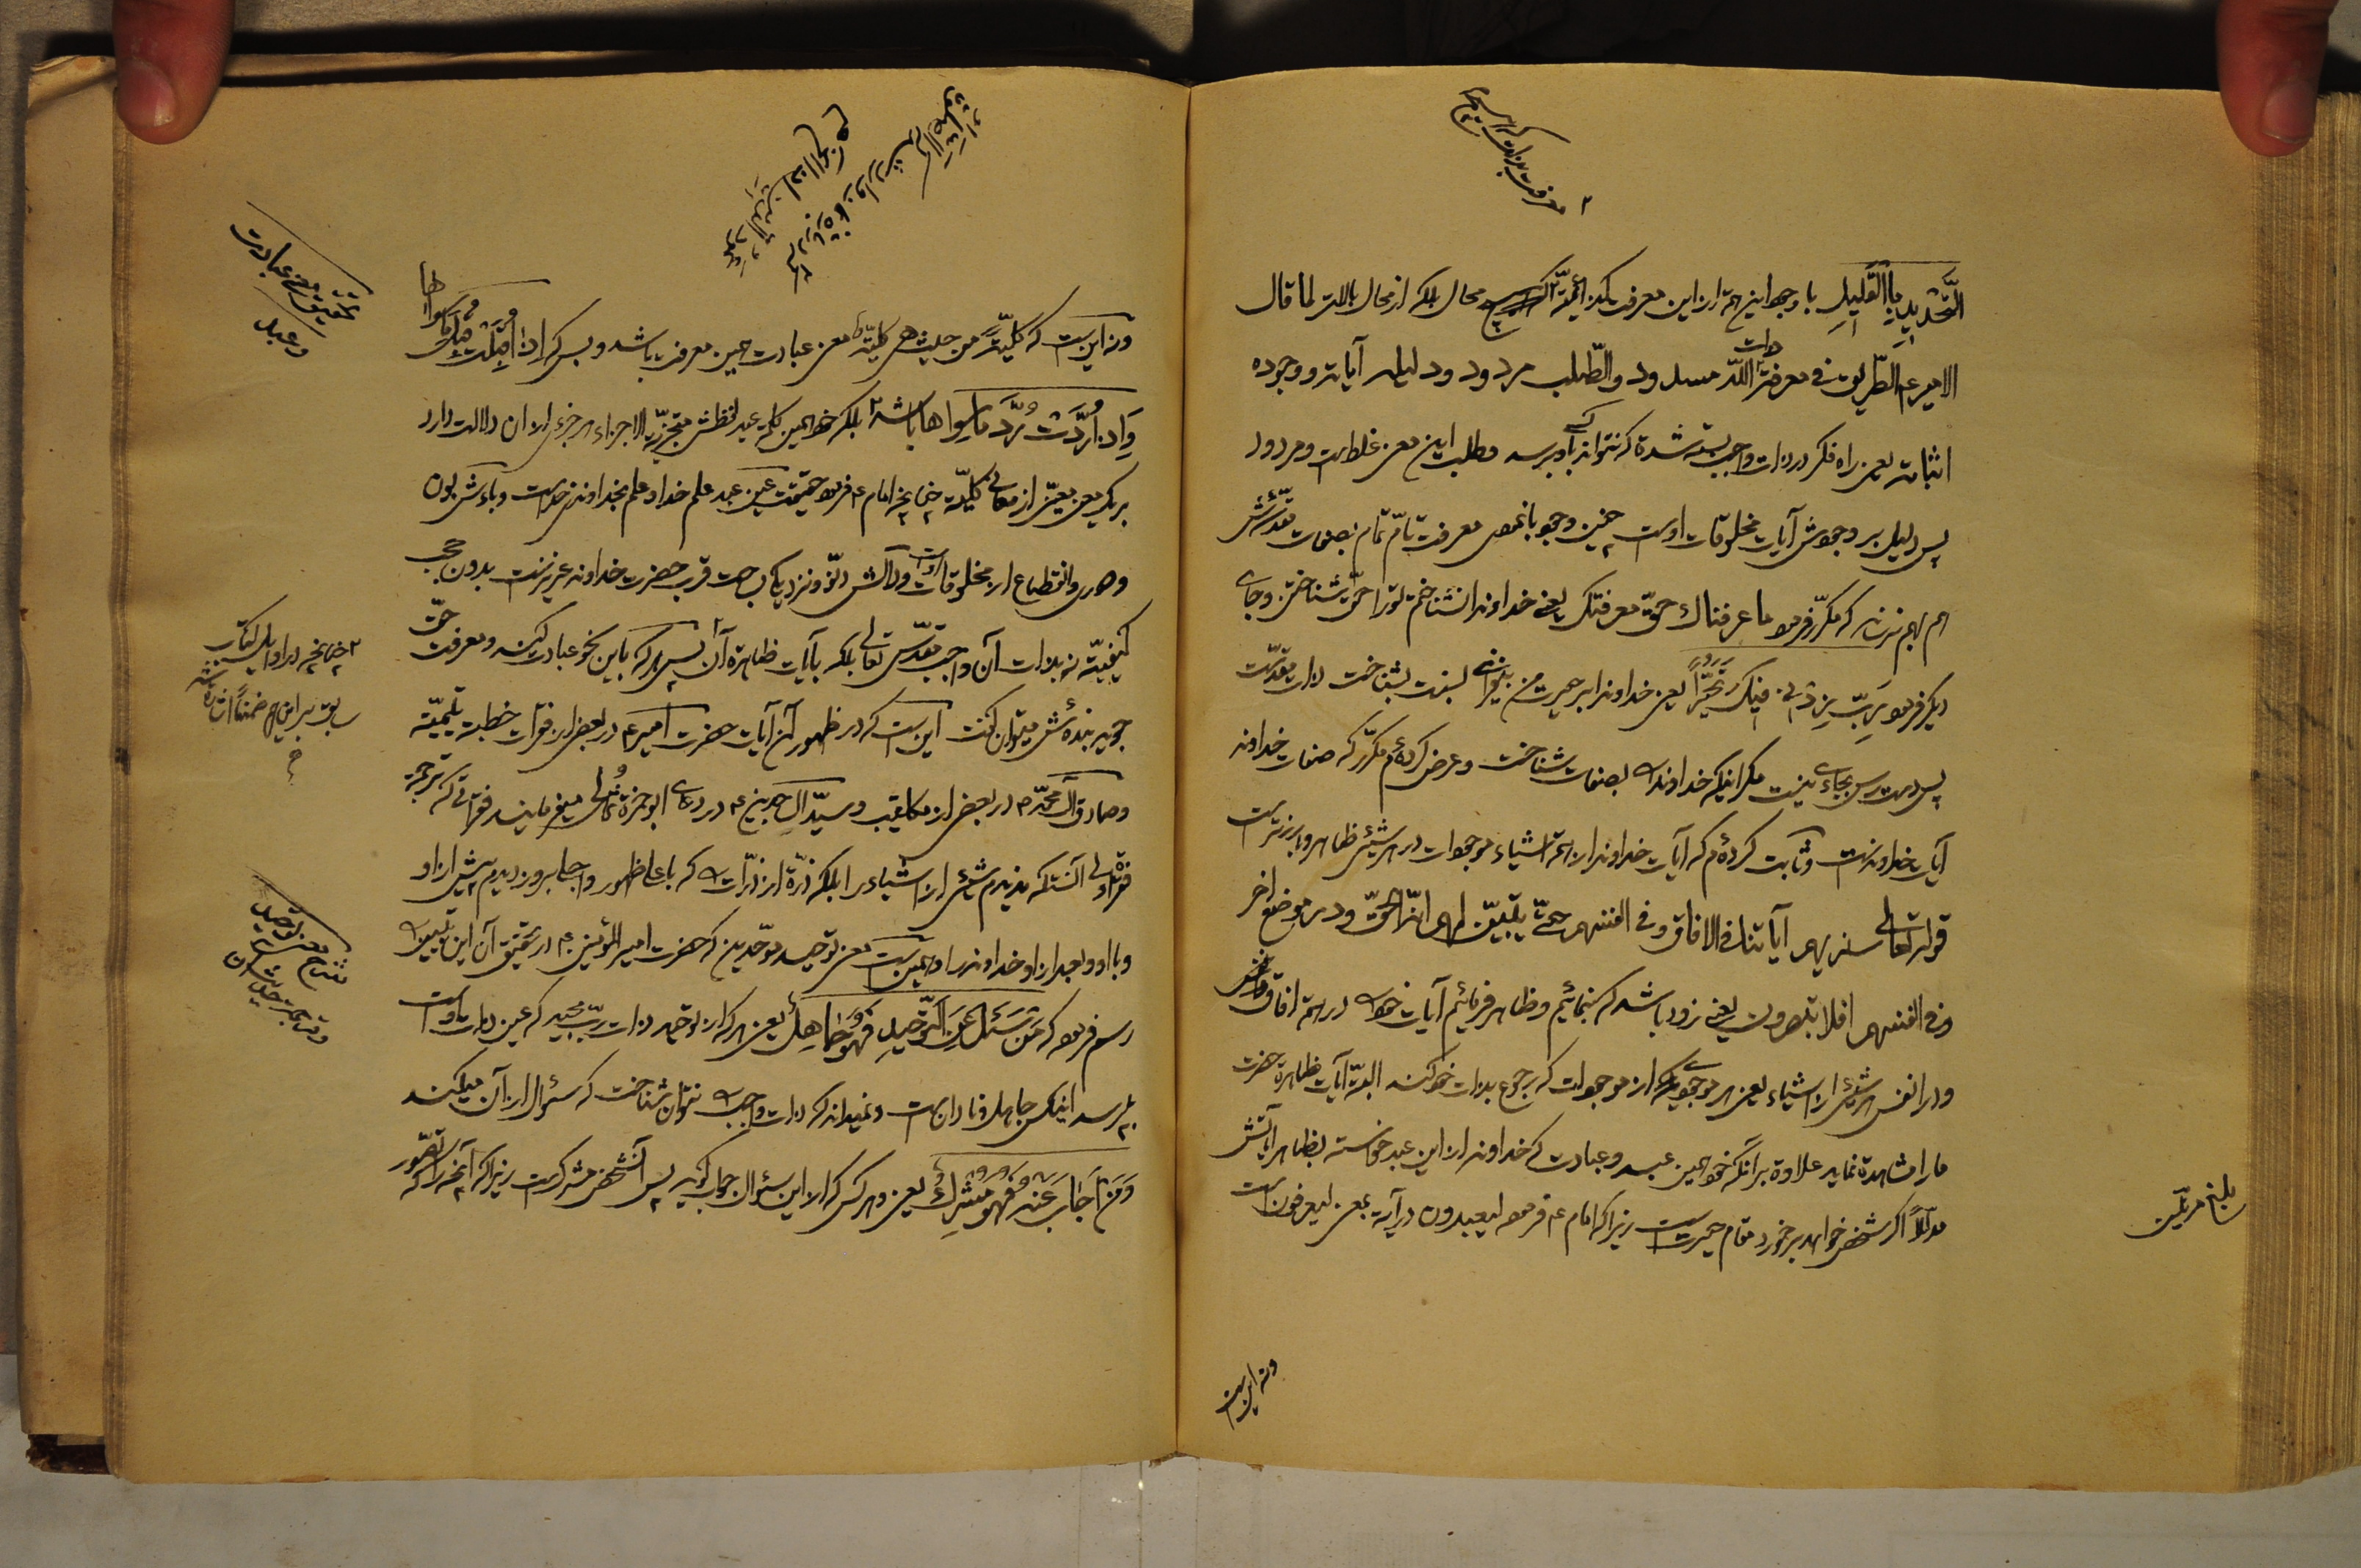 معرفت بذات که اسیر
التَّحْدیدِ بِالْقَلیلِ با وجه این همه از این معرفت بکنه محال بلکه از محال بالاتر لما قال
الامیر ع الطریق فی معرفة ذات اللّه مسدود والطّلب مردود دلیله آیاته ووجوده
اثباته یعنی راه فکر در ذات واجب بسته شده که نتواند کسی بآن برسد و طلب این معنی غلط است و مردود
پس دلیل بر وجودش آیات مخلوقات اوست چنین وجود با نقص معرفت تامّ تمام بصفات مقدّسش
هم بهم نرساند که مکرّر فرمود ما عرفناك حقّ معرفتك یعنی خداوندا نشناختم تو را حقّ شناختن و جای
دیگر فرمود رَبِّ زِدْنی فیك تَحَیُّراً یعنی خداوندا بر حیرت من بیفزای نسبت بشناخت ذات مقدّست
پس دست رس بجای نیست مگر اینکه خداوند را بصفات شناخت و عرض کرده‌ام مکرّر که صفات خداوند
آیات خداوند است و ثابت کرده‌ام که آیات خداوند از همه اشیاء موجودات در هر شیئی ظاهر و بارزتر است
قوله تعالی سنریهم آیاتنا فی الافاق وفی انفسهم حتّی یتبیّن لهم انّه الحقّ ودر موضع اخر
وفی انفسهم افلا تبصرون یعنی زود باشد که بنمائیم و ظاهر فرمائیم آیات خود را در همه افاق
و در انفس هر شیئی از اشیاء یعنی هر موجودی که از موجودات که رجوع بذات خود کند البتّه آیات ظاهره حضرت
ما را مشاهده نماید علاوه بر آنکه خود همین عبد و عبادت که خداوند از این عبد خواسته بظاهر آیاتش
مدلّلاً اگر شخص خواهد بر خورد مقام حیرت است زیرا که امام ع فرموده لیعبدون در آیه بمعنی لیعرفون است
ونه این است
ونه این است که کلّیّة من حیث هی کلّیّة معنی عبادت همین معرفت باشد و بس که اِذا قُبِلَتْ قُبِلَ ما سواها
وَاِذا رُدَّتْ رُدَّ ما سواها باشد بلکه خود همین کلمه عبد لفظش متجزّیة الاجزاء هر جزئی از ان دلالت دارد
بر یك معنی معیّن از معانی کلّیّه چنانچه امام ع فرموده حقیقت عین عبد علم خدا و علم بخداوندی خداست و باءش بون
و دوری و انقطاع از مخلوقات اوست و دالش دنوّ و نزدیکی بجهت قرب حضرت خداوند عزیز است بدون حجب
کیفیّة نه بذات آن واجب مقدّس تعالی بلکه بآیات ظاهره آن پس هر که باین نحو عبادت کند و معرفت حقّ
جوید بنده‌اش میتوان گفت این است که در ظهور آن آیات حضرت امیر ع در بعض از فقرات خطبه یتیمیّه
و صادق آل محمّد ص در بعض از مکاتیب و سیّد السّاجدین ع در دعای ابو حمزه ثمالی میفرمایند فقراتی که ترجمه
فقرة اولی آنستکه ندیدم شیئی از اشیاء را بلکه ذرّة از ذرّات را که با علا ظهور و اجلا بروز دیدم پیش از او
و با او و بعد از او خداوند را و همین است معنی توحید موحّدین که حضرت امیر المؤمنین ع در تحقیق آن این تبیین را
رسم فرموده که مَنْ سَئَلَ عَنِ التَّوْحیدِ فَهُوَ جاهِلٌ یعنی هر که از توحید ذات ربّ مجید که عین ذات اوست
بپرسد اینکس جاهل و نادان است و نمیداند که ذات واجب را نتوان شناخت که سئوال از آن میکند
وَمَنْ اَجابَ عَنْهُ فَهُوَ مُشْرِكٌ یعنی و هر کس که از این سئوال جواب گوید پس آنشخص مشرکست زیرا که آنچه را که تصوّر
تحقیق معنی عبادت
و عبد
چنانچه در اوایل کتاب
سابق بر این هم ضمناً اشاره شد
شرح معنی توحید